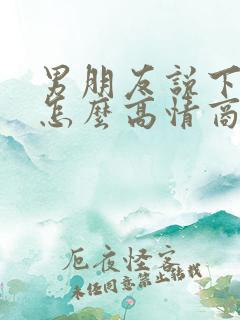 男朋友說下
怎麼高情商
厄夜怪客
未经同意禁止转载